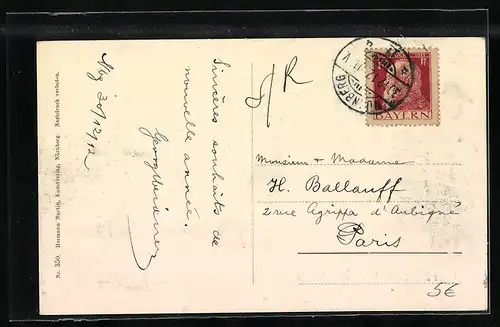 Nbg 30/12/12
Sincères souhaits de
nouvelle année.
Nr. 350. Hermann Martin, Kunstverlag, Nürnberg. Nachdruck verboten.
NÜRNBERG
BAYERN
Monsieur + Madame
H. Ballauff
2 rue Agrippa d'Aubigné
Paris
5€